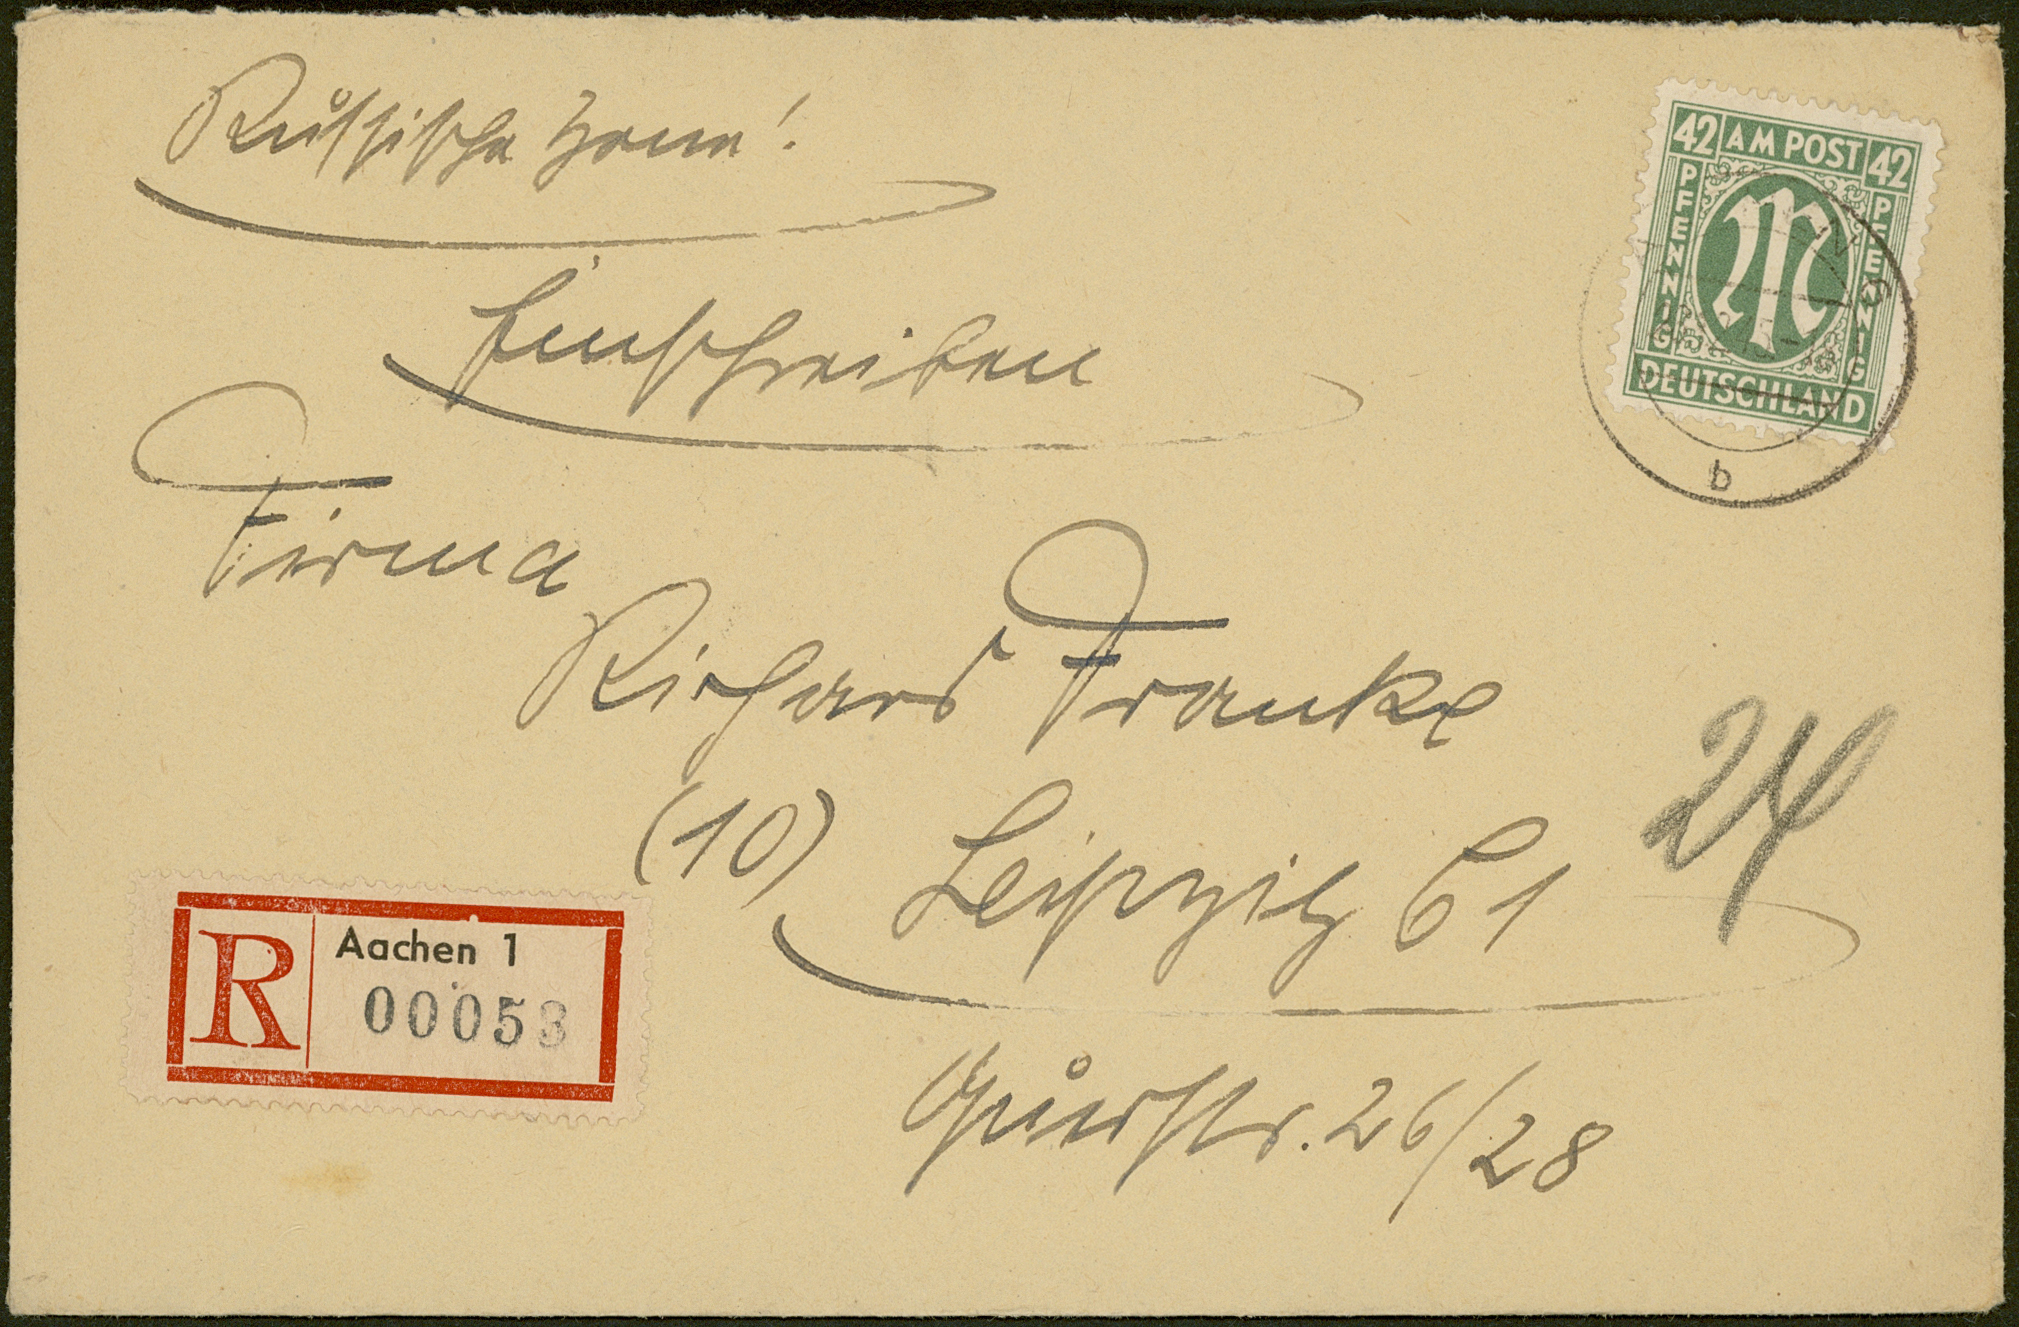 Russische Zone!
Einschreiben
Firma
Richard Franke
(10) Leipzig C 1
Querstr. 26/28
24
42 AM POST 42
PFENNIG
M
PFENNIG
DEUTSCHLAND
b
R
Aachen 1
00053